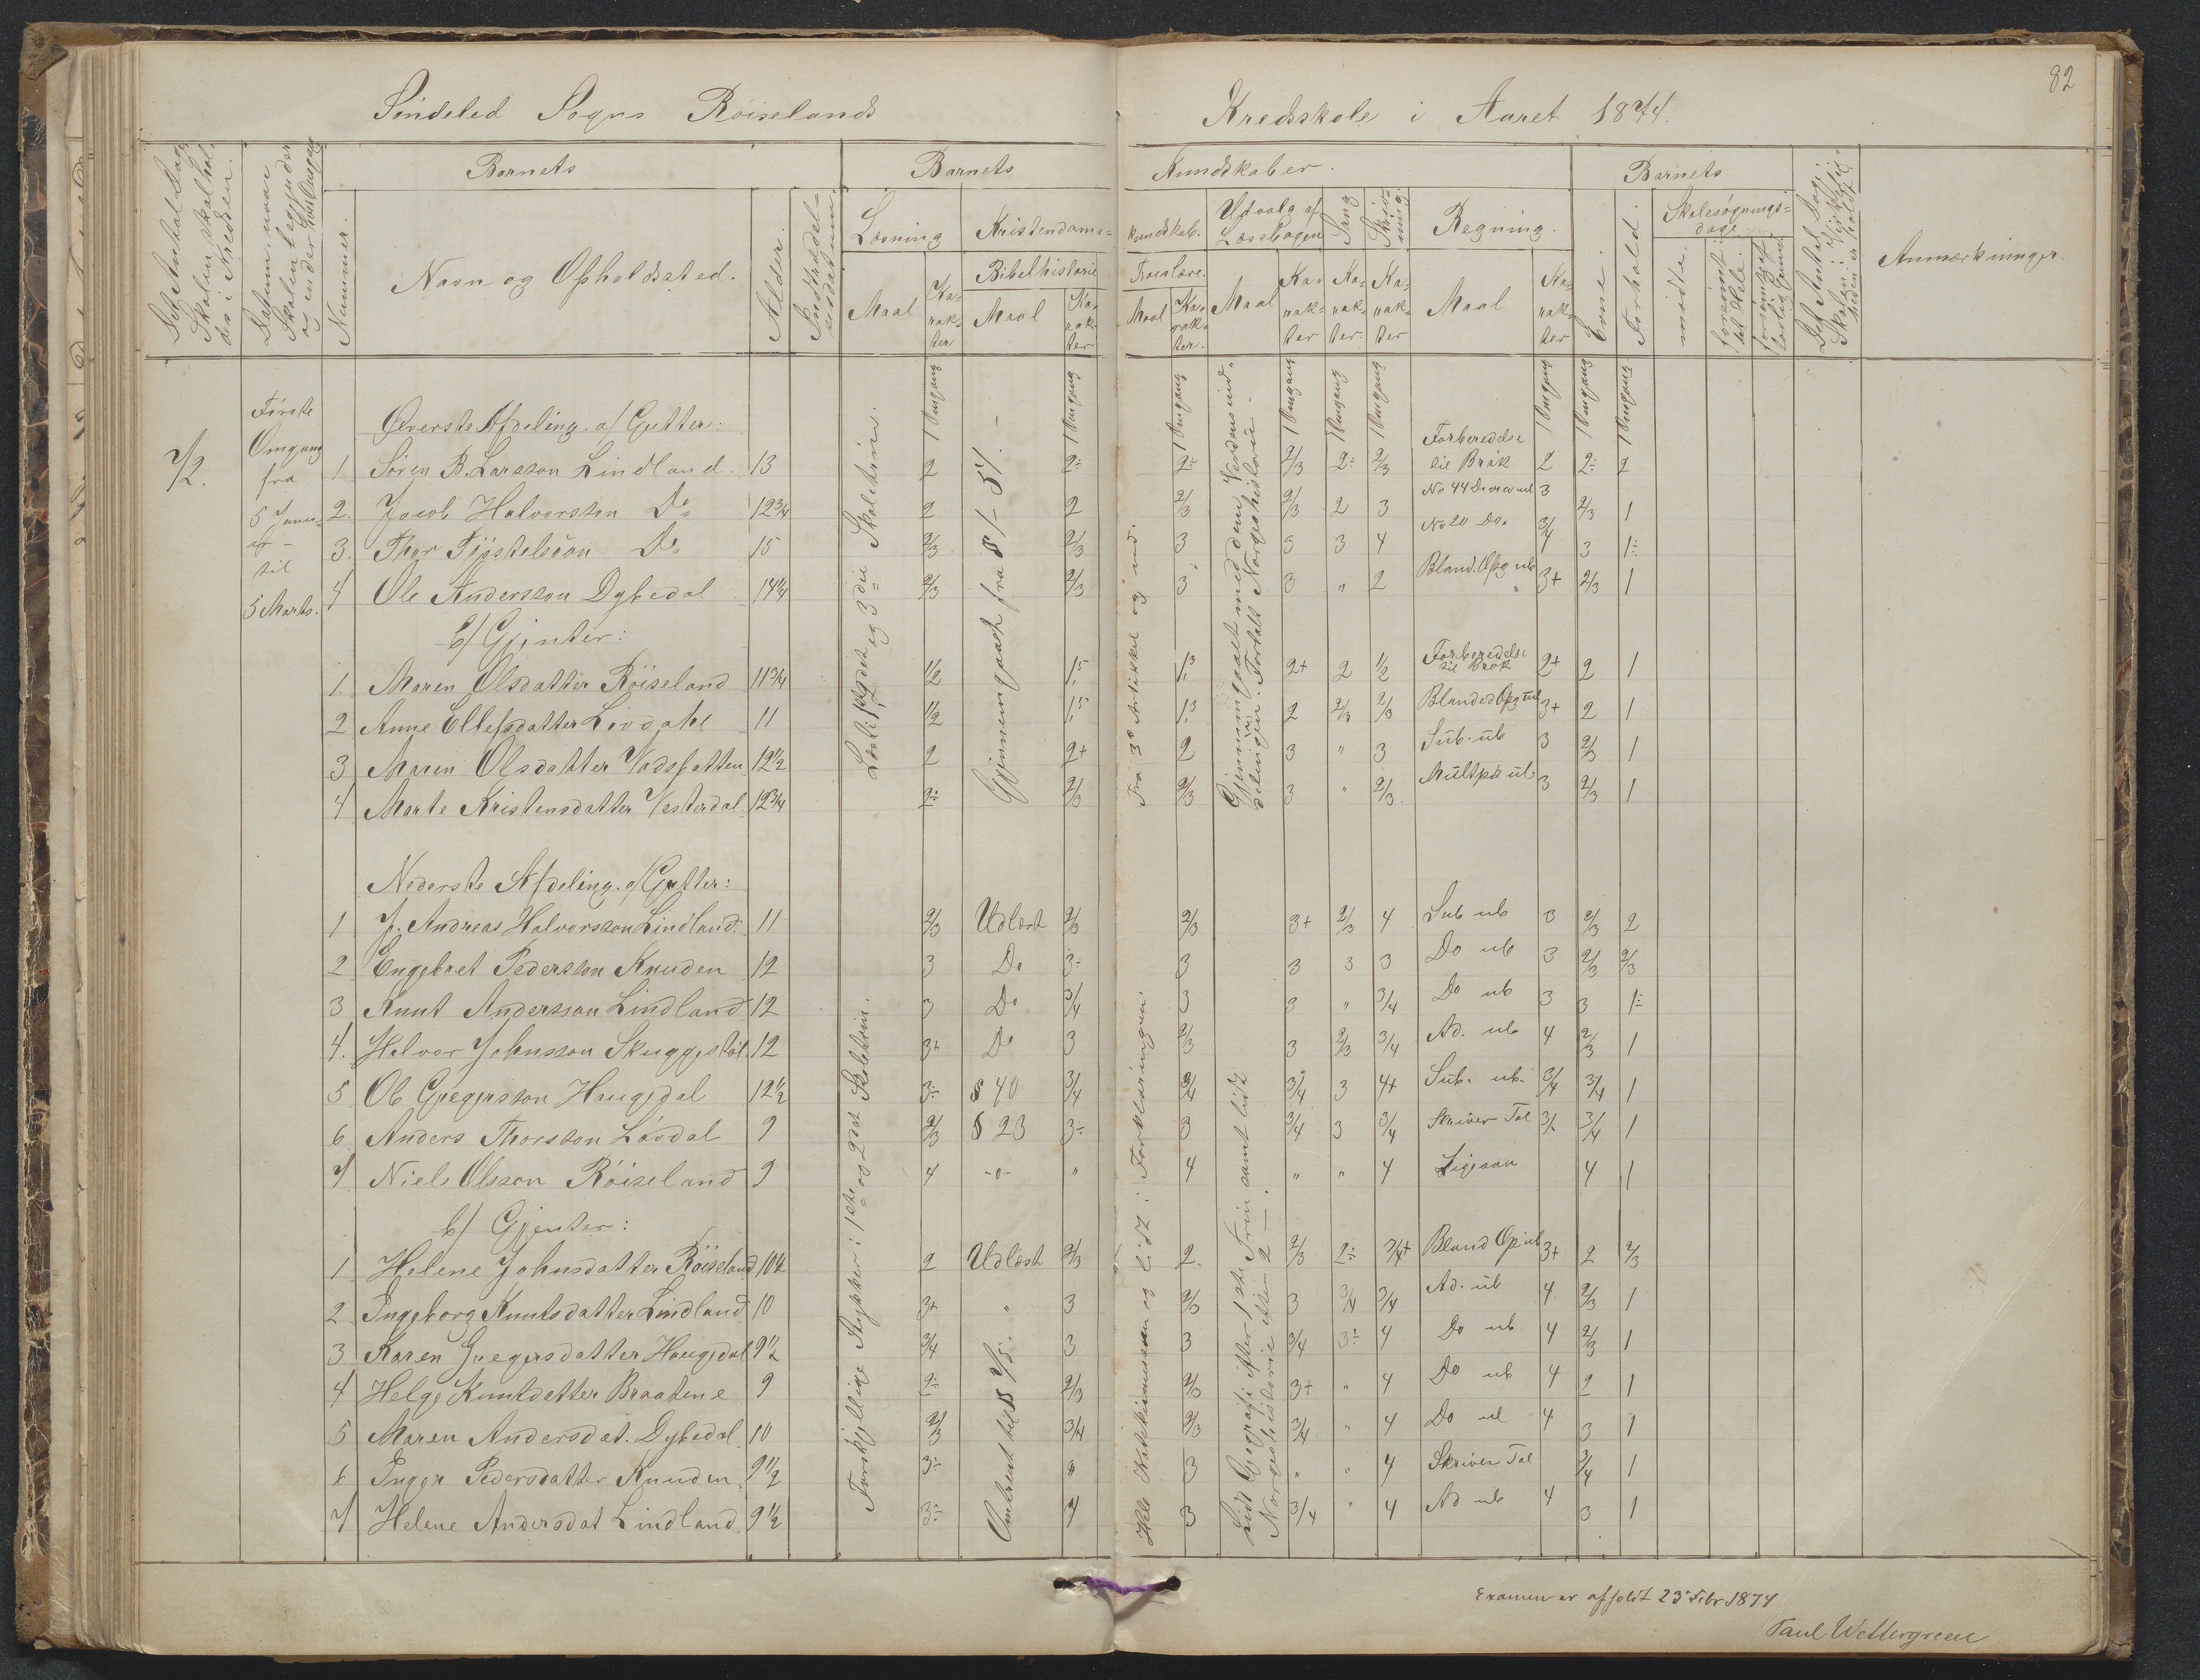 82
Söndeled Sogns Röiselands Kredsskole i Aaret 1874.
Det Antal Dage Skolen skal holdes i Kredsen.
Datum, naar Skolen begynder og ender hver Omgang
Nummer.
Barnets
Navn og Opholdssted.
Alder.
Indtrædelsesdatum.
Barnets Kundskaber.
Læsning
Maal
Karakter
Kristendomskundskab.
Bibelhistorie
Maal
Karakter
Troeslære.
Maal
Karakter.
Udvalg af Læsebogen
Maal
Karakter
Sang
Karakter.
Skrivning.
Karakter
Regning.
Maal
Karakter
Barnets
Evne.
Forhold.
Skolesøgningsdage
mødte.
forsømt i det Hele.
forsømt af lovlig Grund.
Det Antal Dage Skolen i Virkeligheden er holdt.
Anmærkninger.
1 Omgang 1 Omgang 1 Omgang 1 Omgang 1 Omgang 1 Omgang 1 Omgang 1 Omgang 1 Omgang
7/2.
Første
Omgang
fra
5 Janu-
ar –
til
5 Marts.
Læst i 1ste, 2det og 3die Skoletrin.
Gjennemgaaet fra § 1 – 51. –
Fra 3e Artikkel og ud.
Øverste Afdeling. a/ Gutter:
1 Søren B. Larsson Lindland. 13 2 2÷ 2÷ 2/3 2÷ 2/3 Forberedelse til Brøk 2 2÷ 2
2. Jacob Halvorsson Do 12 3/4 2 2 2/3 2/3 2 3 No 44 3 2/3 1
3. Thor Tjøstelsøon Do 15 2/3 2/3 3 3 3 4 No 20 Do. 3/4 3 1÷
4 Ole Andersson Dybedal 14 1/4 2/3 2/3 3 3 " 2 Bland. Opg ub 3+ 2/3 1
b/ Gjenter:
1. Maren Olsdatter Röiseland 11 3/4 1/2 1.5 1.3 2+ 2 1/2 Forberedelse til Brøk 2+ 2 1
2 Anne Ellefsdatter Lövdahl 11 1/2 1.5 1.3 2 2/3 2/3 Blanded Opg ub 3+ 2 1
3 Maren Olsdatter Vadsfatten 12 1/2 2 2+ 2 3 " 3 Sub. ub 3 2/3 1
4 Marte Kristensdatter Vesterdal 12 3/4 2÷ 2/3 2/3 3 " 2/3 Multpk ub 3 2/3 1
Nederste Afdeling. a/ Gutter:
Forskjellige Stykker i 1ste og 2det Skoletrin.
Hele Katekismusen og lidt i Forklaringen.
Lidt Geografi efter 1ste Trin samt lidt Norgeshistorie efter 2 – .
1 J. Andreas Halvorsson Lindland. 11 2/3 Udlæst 2/3 2/3 3+ 2/3 4 Sub ub 3 2/3 2
2 Engebret Pedersson Knuden 12 3 Do 3÷ 3 3 3 3 Do ub 3 2/3 2/3
3 Knut Andersson Lindland 12 3 Do 3/4 3 3 " 3/4 Do ub 3 3 1÷
4. Halvor Johnsson Skuggestøl. 12 3+ Do 3 2/3 3 2/3 3/4 Ad. ub 4 2/3 1
5 Ole Gregersson Haugedal 12 1/2 3÷ § 40 3/4 3/4 3/4 3 4+ Sub. ub. 3/4 3/4 1
6 Anders Thorsson Lövdal 9 2/3 § 23 3÷ 3 3/4 3 3/4 Skriver Tal 3/4 1
7 Niels Olsson Röiseland 9 4 -o- " 4 " " 4 Ligesaa 4 1
b/ Gjenter:
1 Helene Johnsdatter Röiseland 10 1/2 2 Udlæst 2/3 2. 2/3 2÷ 3/4+ Bland Op ub 3+ 2 2/3
2 Ingeborg Knutsdatter Lindland 10 3+ " 3 2/3 3 3/4 3/4 Ad. ub 4. 2/3 1
3 Karen Gregersdatter Haugedal 9 1/2 3/4 3 3 3/4 3÷ 4 Do ub 4 2/3 1
4 Helge Knutdatter Braatene 9 2÷ 2/3 2/3 3+ " 4 Do ub 4 2 1
5 Maren Andersdat. Dybedal 10 2/3 3/4 2/3 3/4 " 4 Do ub 4 3 1
6 Inger Pedersdatter Knuden. 9 1/2 3÷ " 3 " " 4 Skriver Tal 3/4 1
7 Helene Andersdat Lindland. 9 1/2 3÷ 4 3 3/4 " 4 Ad ub 4 3 1
Examen er afholdt 25 Febr 1874
Paul Wettergreen